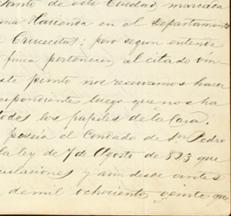 tante de esta Ciudad, marcada
una Hacienda en el departamento
Crucecitas; pero segun entiende
finca pertenecia al citado vin
este punto nos reservamos hacer
spondiente luego que nos ha
todos los papeles de la Casa.
poseia el Condado de Sn. Pedro
la ley de 7 de Agosto de 823 que
culaciones y aun desde antes
de mil ochocientos veinte que